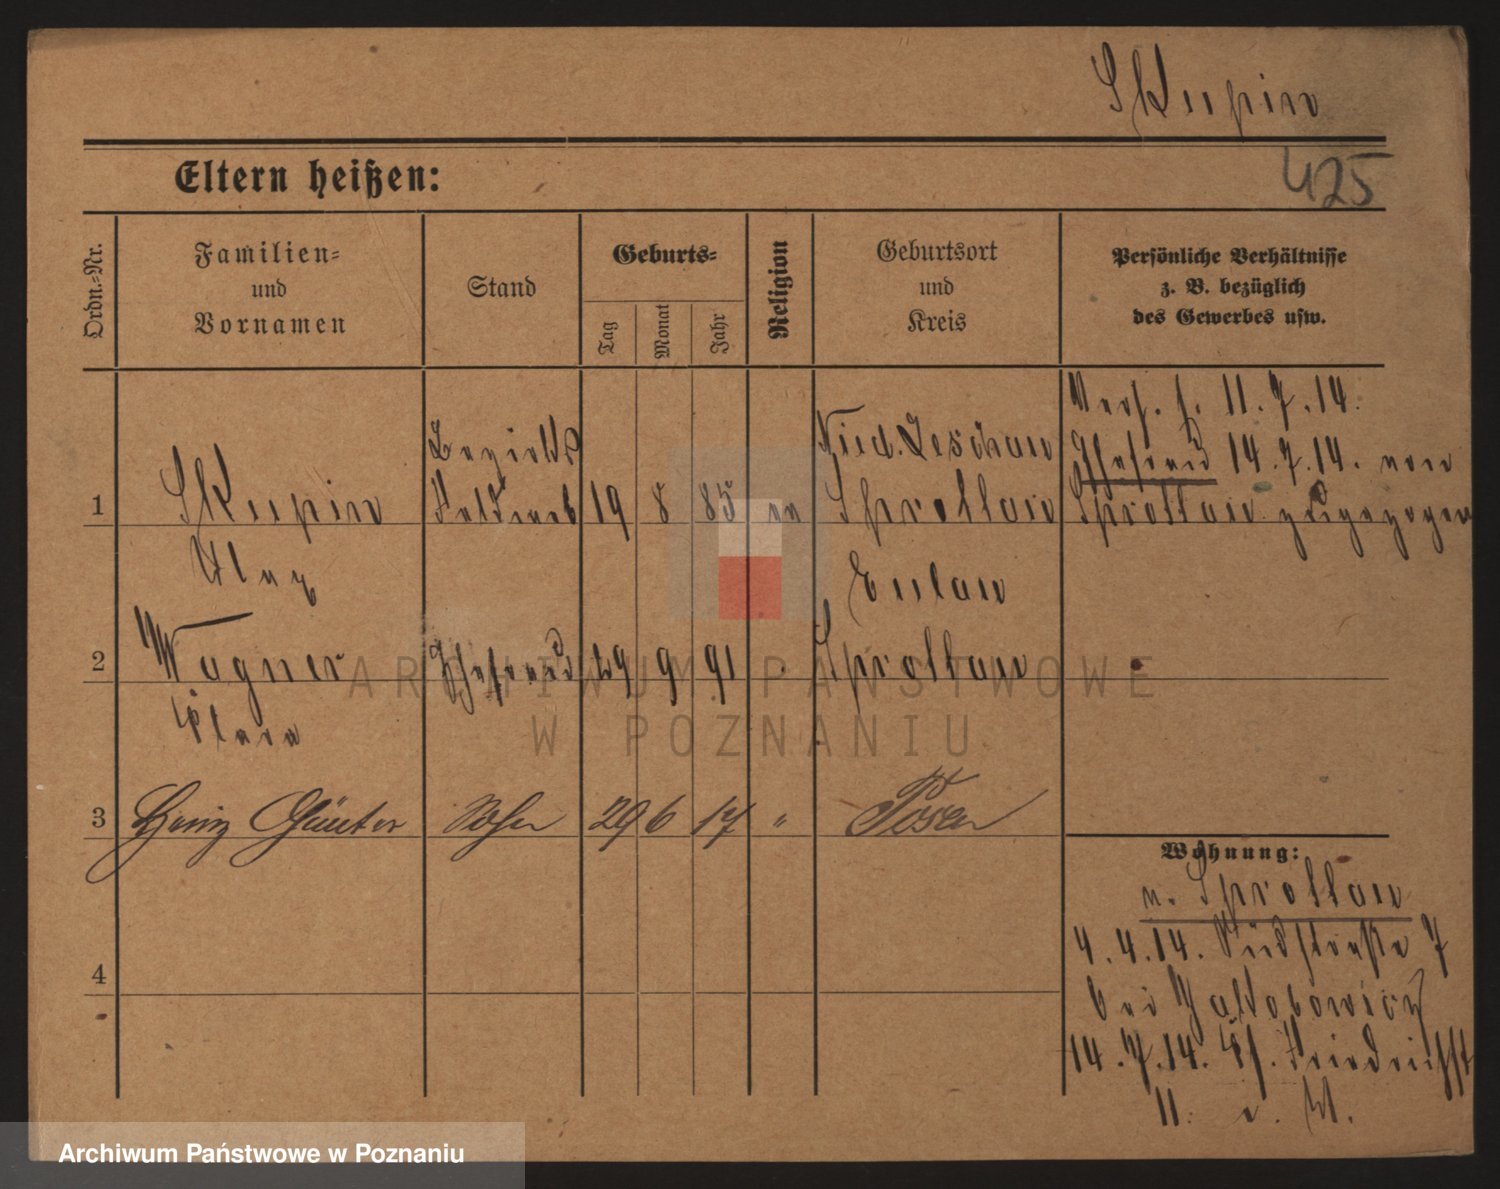 Skupin
Eltern heißen:
425
Ordn.-Nr.
Familien-
und
Vornamen
Stand
Geburts-
Tag
Monat
Jahr
Religion
Geburtsort
und
Kreis
Persönliche Verhältnisse
z. B. bezüglich
des Gewerbes usw.
Verh. s. 11.7.14.
Ehefrau 14.7.14. von
Sprottau zugezogen
1
Skupin
Bezirks
Feldweb 19 8 85 ev
Nied. Leschen
Sprottau
Eulau
2
Wagner
Clara
Ehefrau 29 9 91 "
Sprottau
3 Heinz Günter Sohn 29 6 17 " Posen
4
Wohnung:
v. Sprottau
4.4.14. Südstraße 7
bei Jakobowicz
14.7.14. Kl. Friedrichst
11. i. W.
ARCHIWUM PAŃSTWOWE
W POZNANIU
Archiwum Państwowe w Poznaniu